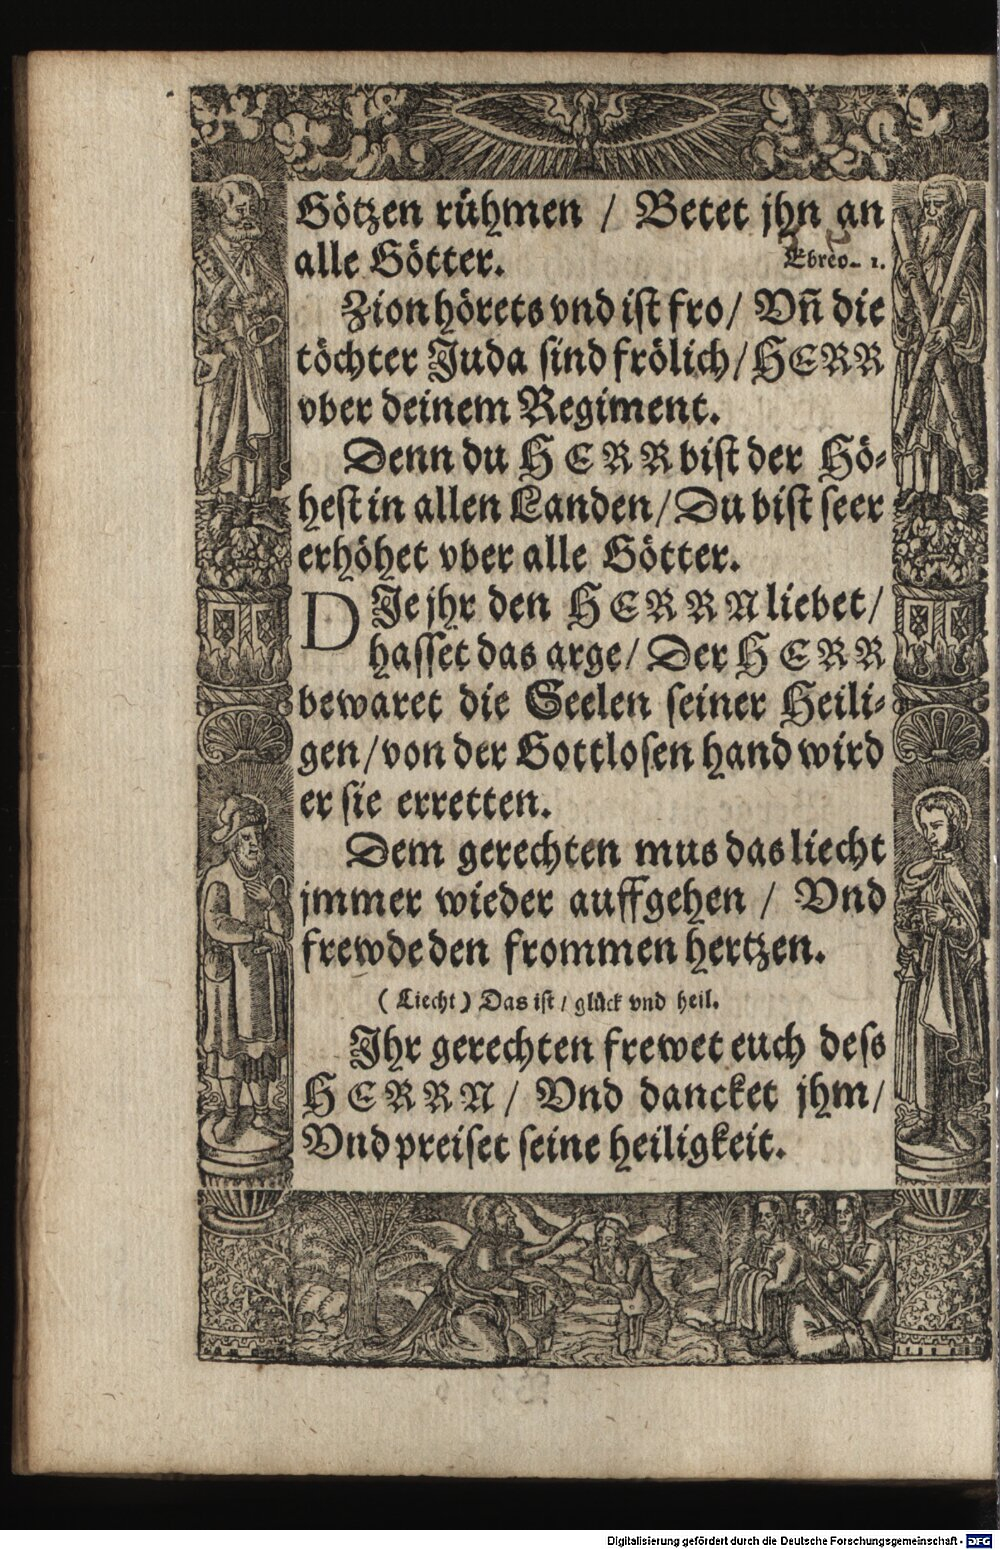 Götzen rühmen / Betet jhn an
alle Götter. Ebreo. 1.
Zion hörets vnd ist fro / Vñ die
töchter Juda sind frölich / HERR
vber deinem Regiment.
Denn du HERR bist der Hö⸗
hest in allen Landen / Du bist seer
erhöhet vber alle Götter.
DJe jhr den HERRN liebet /
hasset das arge / Der HERR
bewaret die Seelen seiner Heili⸗
gen / von der Gottlosen hand wird
er sie erretten.
Dem gerechten mus das liecht
jmmer wieder auffgehen / Vnd
frewde den frommen hertzen.
( Liecht ) Das ist / glück vnd heil.
Jhr gerechten frewet euch dess
HERRN / Vnd dancket jhm /
Vnd preiset seine heiligkeit.
Digitalisierung gefördert durch die Deutsche Forschungsgemeinschaft - DFG